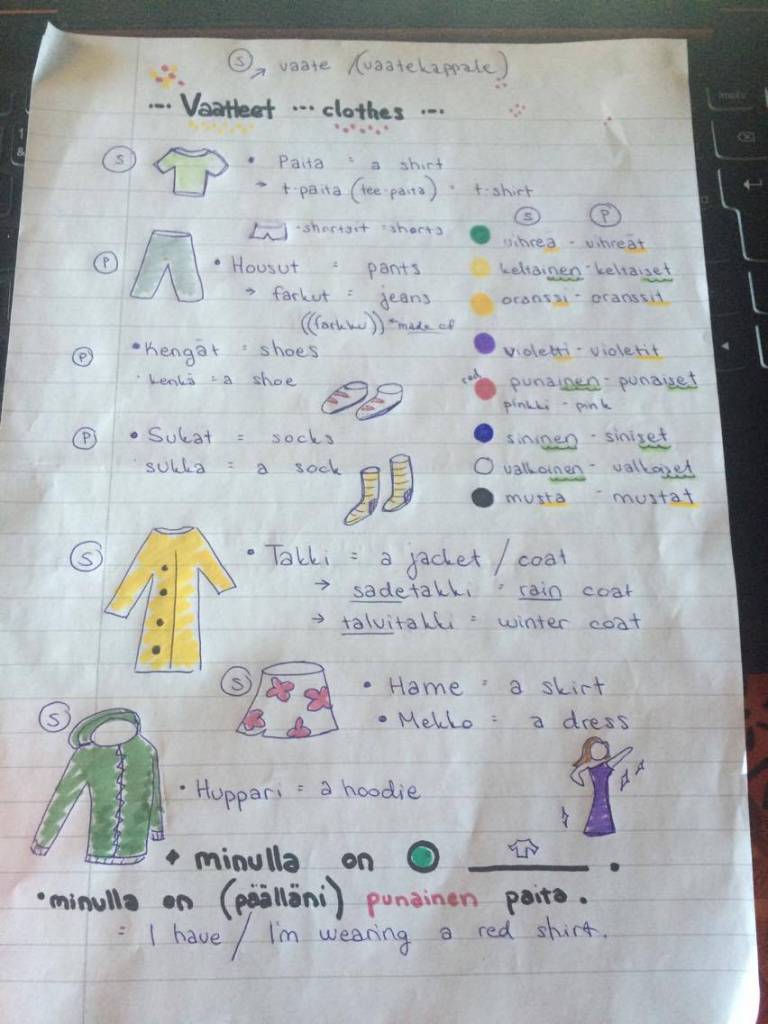 S → vaate / (vaatekappale)
... Vaatteet ... clothes ...
S • Paita = a shirt
→ t-paita (tee-paita) = t-shirt
- shortsit = shorts
P • Housut = pants
→ farkut = jeans
((farkku)) • made of
P • Kengät = shoes
• kenkä = a shoe
P • Sukat = socks
sukka = a sock
S P
vihreä - vihreät
keltainen - keltaiset
oranssi - oranssit
violetti - violetit
red punainen - punaiset
pinkki - pink
sininen - siniset
valkoinen - valkoiset
musta - mustat
S • Takki = a jacket / coat
→ sadetakki = rain coat
→ talvitakki = winter coat
S • Hame = a skirt
• Mekko = a dress
S • Huppari = a hoodie
• minulla on ________ .
• minulla on (päälläni) punainen paita .
= I have / I'm wearing a red shirt.